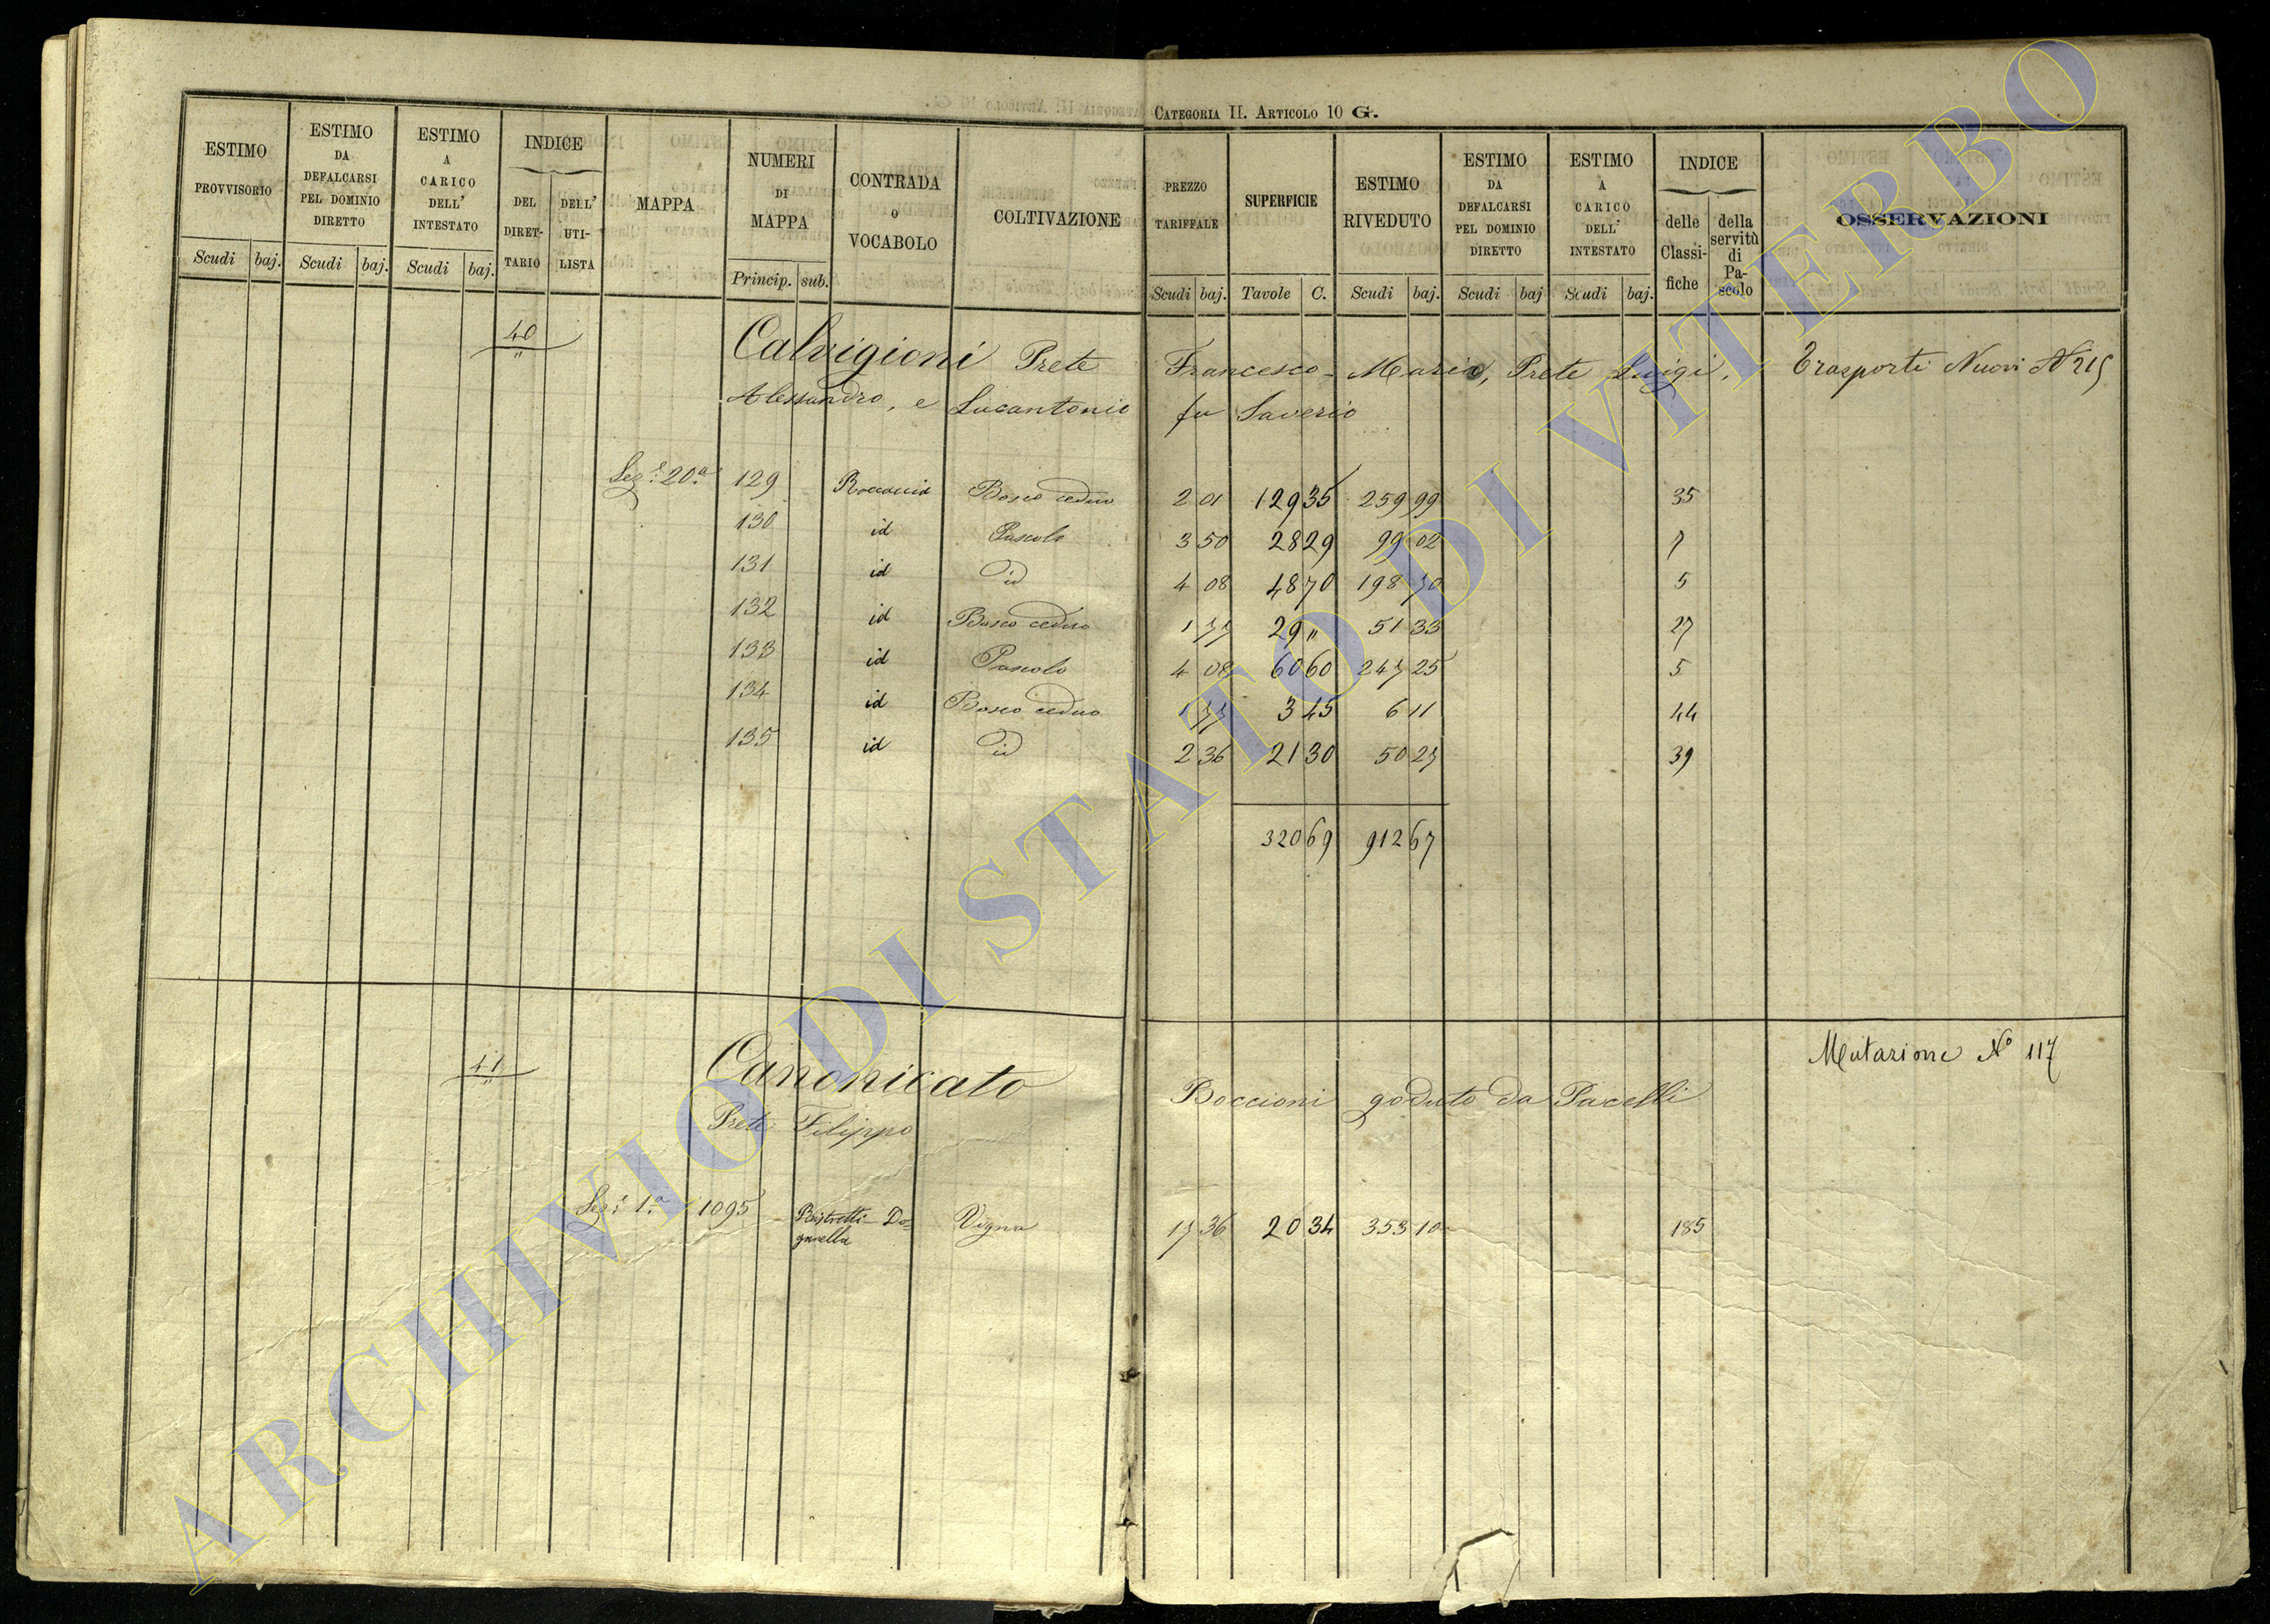 CATEGORIA II. ARTICOLO 10 G.
ESTIMO PROVVISORIO Scudi baj.
ESTIMO DA DEFALCARSI PEL DOMINIO DIRETTO Scudi baj.
ESTIMO A CARICO DELL' INTESTATO Scudi baj.
INDICE DEL DIRETTARIO DELL' UTILISTA
MAPPA
NUMERI DI MAPPA Princip. sub.
CONTRADA O VOCABOLO
COLTIVAZIONE
PREZZO TARIFFALE Scudi baj.
SUPERFICIE Tavole C.
ESTIMO RIVEDUTO Scudi baj.
ESTIMO DA DEFALCARSI PEL DOMINIO DIRETTO Scudi baj
ESTIMO A CARICO DELL' INTESTATO Scudi baj.
INDICE delle Classifiche della servitù di Pascolo
OSSERVAZIONI
40 Calvigioni Prete Francesco Maria, Prete Luigi, Trasporti Nuovi N 215
Alessandro, e Lucantonio fu Saverio
Sez.e 20a 129 Bosco ceduo 2 01 129 35 259 99 35
130 id Pascolo 3 50 28 29 99 02 7
131 id id 4 08 48 70 198 70 5
132 id Bosco ceduo 1 77 29 " 51 33 27
133 id Pascolo 4 08 60 60 247 25 5
134 id Bosco ceduo 1 77 3 45 6 11 44
135 id id 2 36 21 30 50 27 39
320 69 912 67
41 Canonicato Boccioni goduto da Pacelli Mutazione No 117
Prete Filippo
Sez.e 1a 1095 Vigna 17 36 20 34 353 10 185
ARCHIVIO DI STATO DI VITERBO